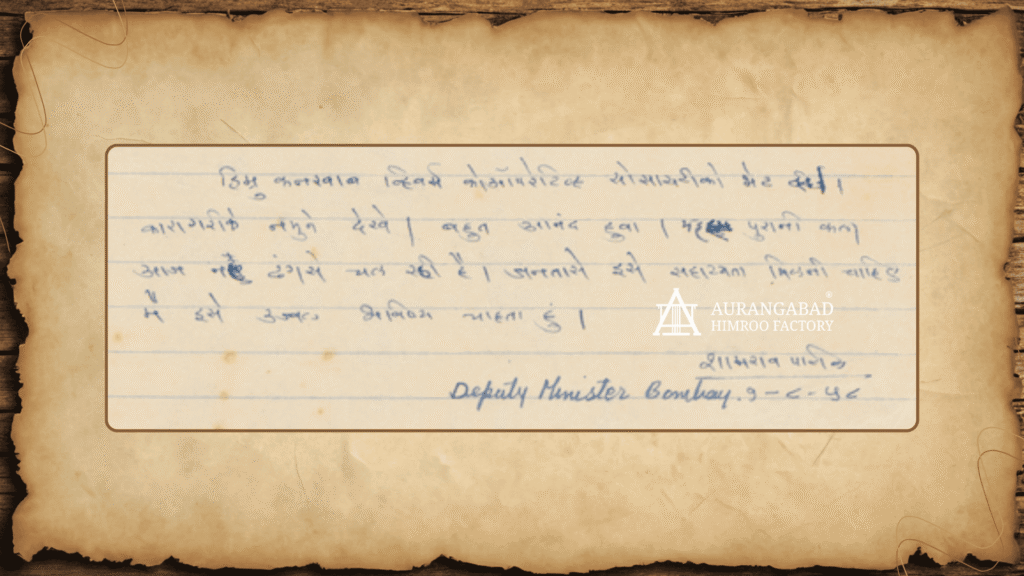 हिमरू कमखाब व्हिवर्स कोऑपरेटिव्ह सोसायटीको भेट दी।
कारागरीके नमुने देखे। बहुत आनंद हुवा। यह पुरानी कला
आज नहे ढंगसे चल रही है। जनतासे इसे सहाय्यता मिलनी चाहिए
मै इसे उज्वल भविष्य चाहता हुं।
AURANGABAD
HIMROO FACTORY
शामराव पाटील
Deputy Minister Bombay. १-८-५८